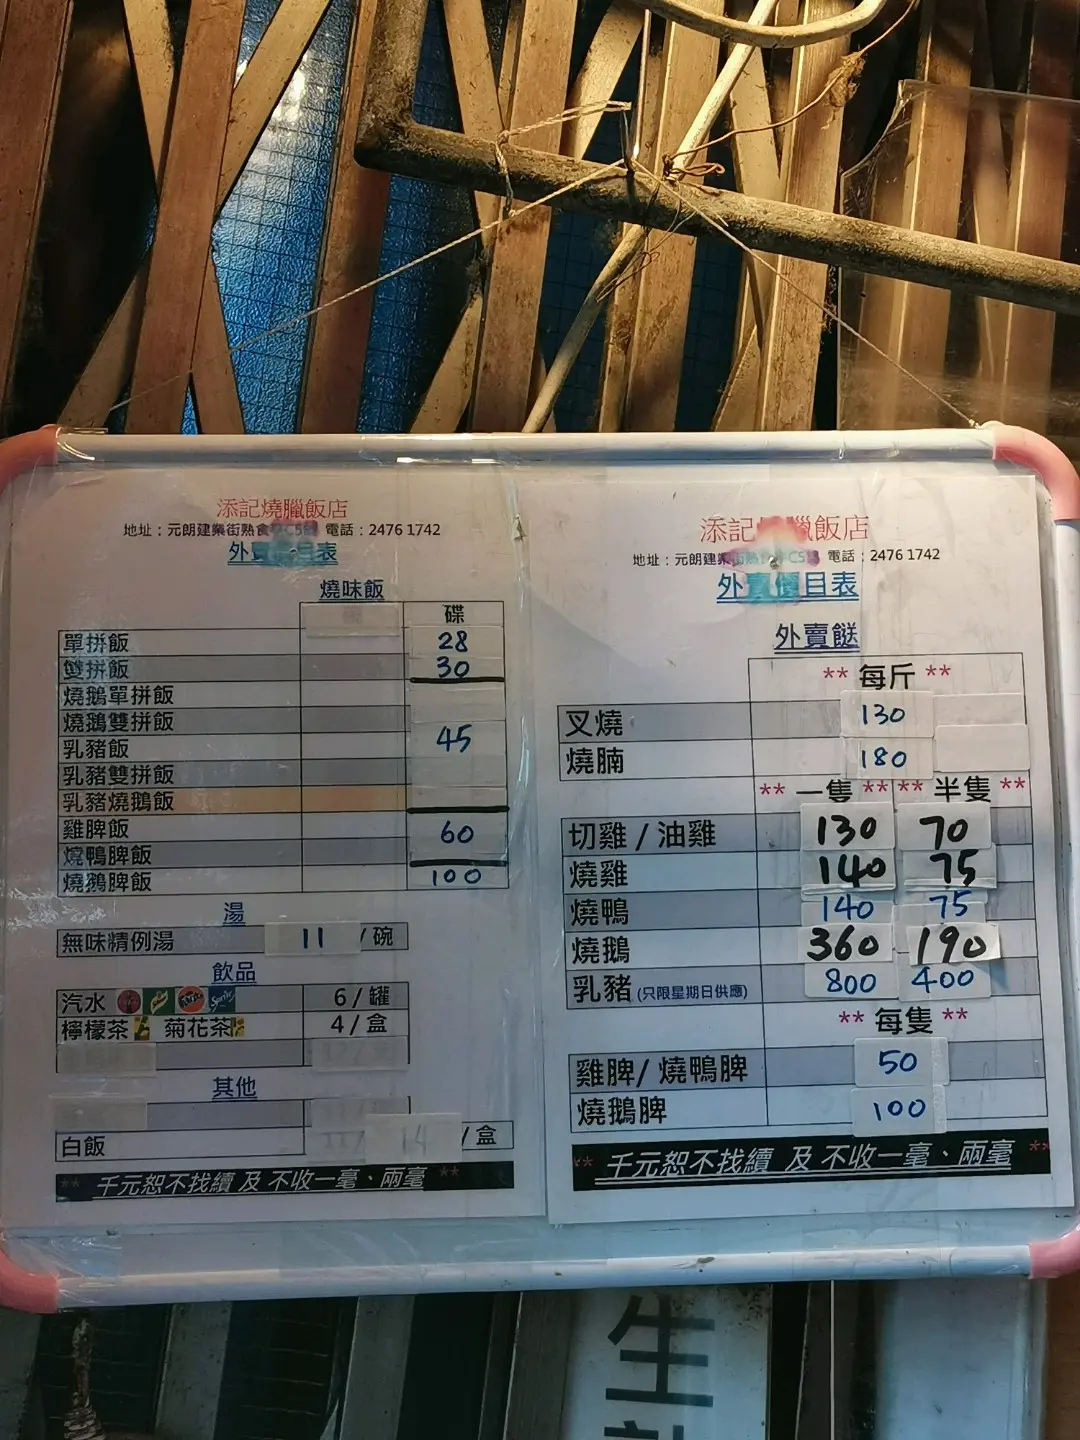 添記燒臘飯店
地址：元朗建樂街熟食 C5 電話：2476 1742
外賣 目表
燒味飯
碟
單拼飯 28
雙拼飯 30
燒鵝單拼飯
燒鵝雙拼飯
乳豬飯 45
乳豬雙拼飯
乳豬燒鵝飯
雞脾飯 60
燒鴨脾飯
燒鵝脾飯 100
湯
無味精例湯 11 /碗
飲品
汽水 6/罐
檸檬茶 菊花茶 4/盒
其他
白飯 14 /盒
** 千元恕不找續 及 不收一毫、兩毫 **
添記 臘飯店
地址：元朗建樂 C5 電話：2476 1742
外賣價目表
外賣餸
** 每斤 **
叉燒 130
燒腩 180
** 一隻 ** ** 半隻 **
切雞 / 油雞 130 70
燒雞 140 75
燒鴨 140 75
燒鵝 360 190
乳豬 (只限星期日供應) 800 400
** 每隻 **
雞脾/ 燒鴨脾 50
燒鵝脾 100
** 千元恕不找續 及 不收一毫、兩毫 **
生